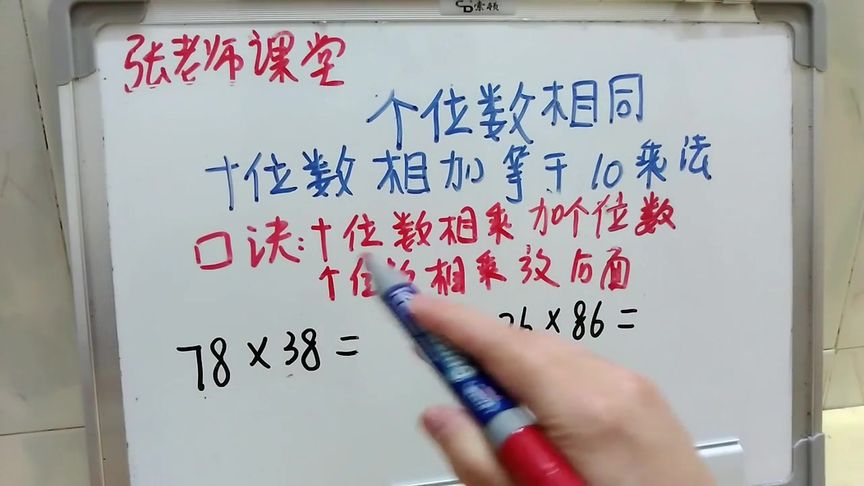 索顿
张老师课堂
个位数相同
十位数相加等于10乘法
口诀:十位数相乘加个位数
个位数相乘放后面
78×38=
26×86=